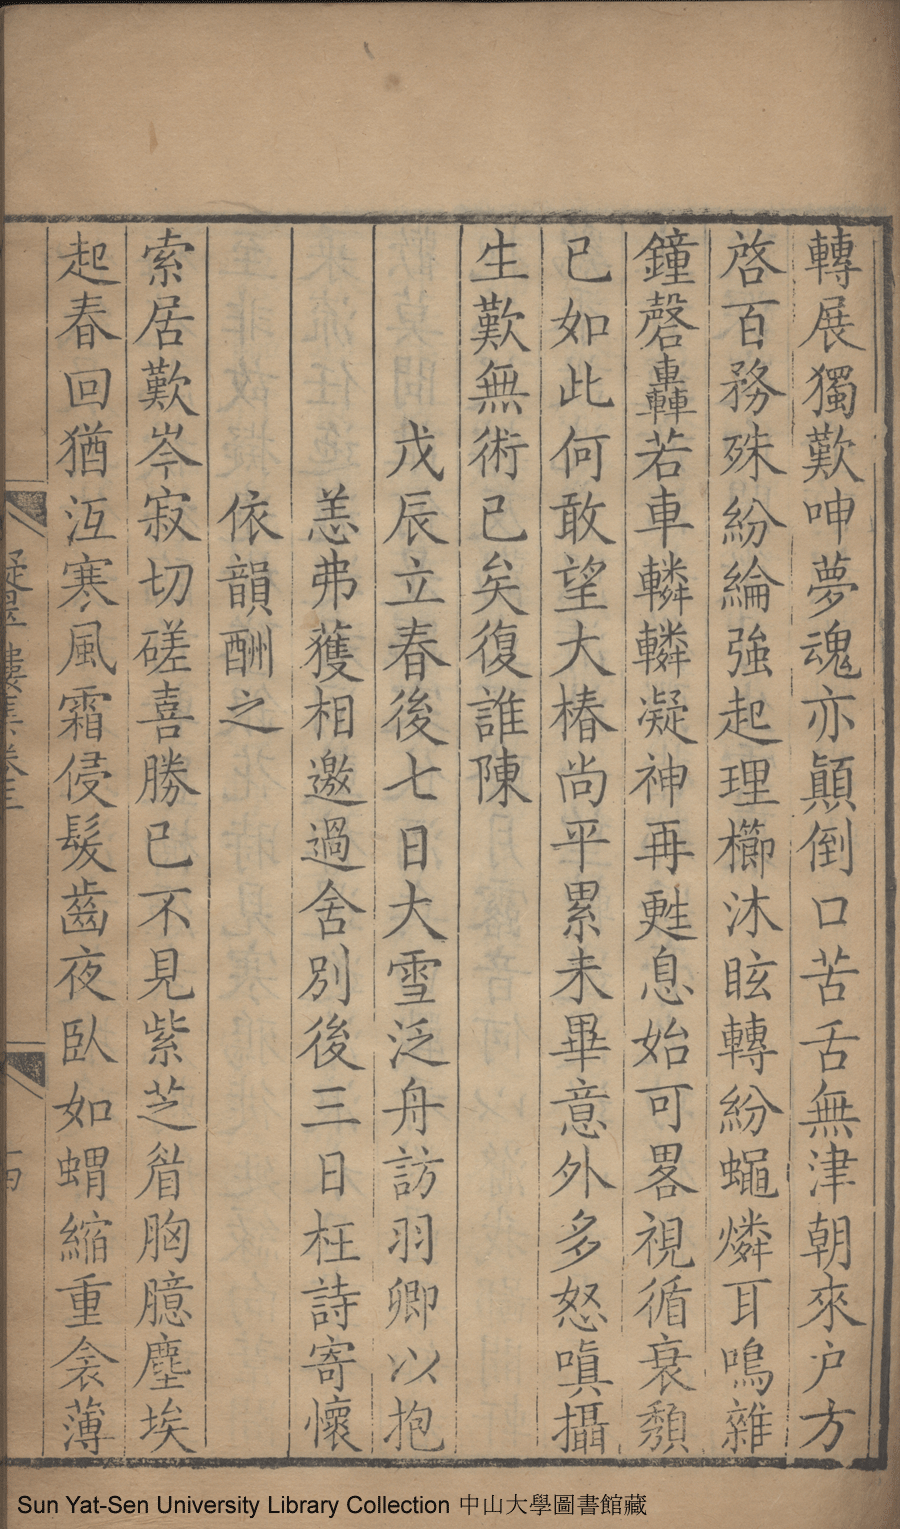 轉展獨歎呻夢魂亦顛倒口苦舌無津朝來户方
啓百務殊紛綸強起理櫛沐眩轉紛蠅燐耳鳴雜
鐘磬轟若車轔轔凝神再甦息始可畧視循衰頽
已如此何敢望大椿尚平累未畢意外多怒嗔攝
生歎無術已矣復誰陳
戊辰立春後七日大雪泛舟訪羽卿以抱
恙弗獲相邀過舍別後三日枉詩寄懷
依韻酬之
索居歎岑寂切磋喜勝已不見紫芝眉胸臆塵埃
起春回猶沍寒風霜侵髮齒夜臥如蝟縮重衾薄
樓集卷三
Sun Yat-Sen University Library Collection 中山大學圖書館藏